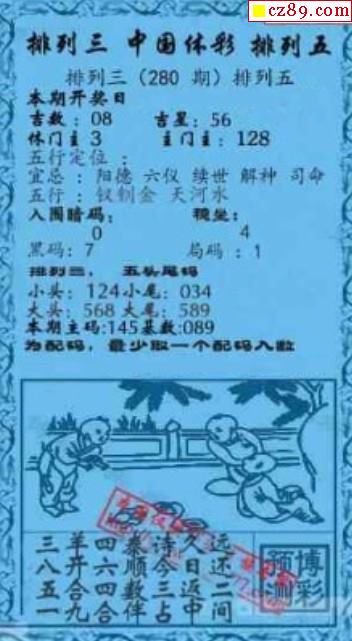 cz89.com
排列三 中国体彩 排列五
排列三（280 期）排列五
本期开奖日
吉数：08 吉星：56
休门主 3 主门主：128
五行定位：
宜忌：阳德 六仪 续世 解神 司命
五行：钗钏金 天河水
入围暗码：
0 4
黑码：7 局码：1
排列三、 五头尾码
小头：124小尾：034
大头：568大尾：589
本期主码:145基数:089
为配码，最少取一个配码入数
三羊四泰涛久远
八开六顺今日还
五合四数三返二
一九合伴占中间
预测
博彩